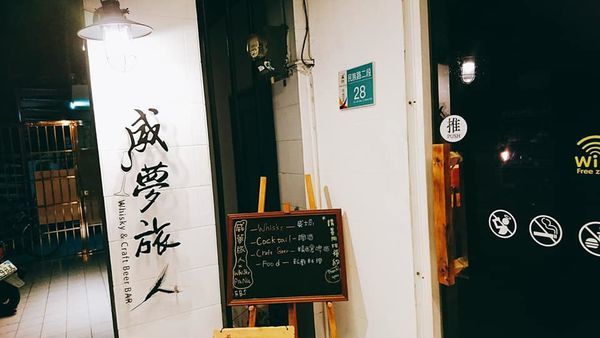 威夢旅人
Whisky & Craft Beer BAR
民族路二段
28
推
PUSH
Wi
Free z
威夢旅人
Whisky
— Whisky —
— Cocktail — 調酒
— Craft Beer — 精釀啤酒
— Food — 私廚料理